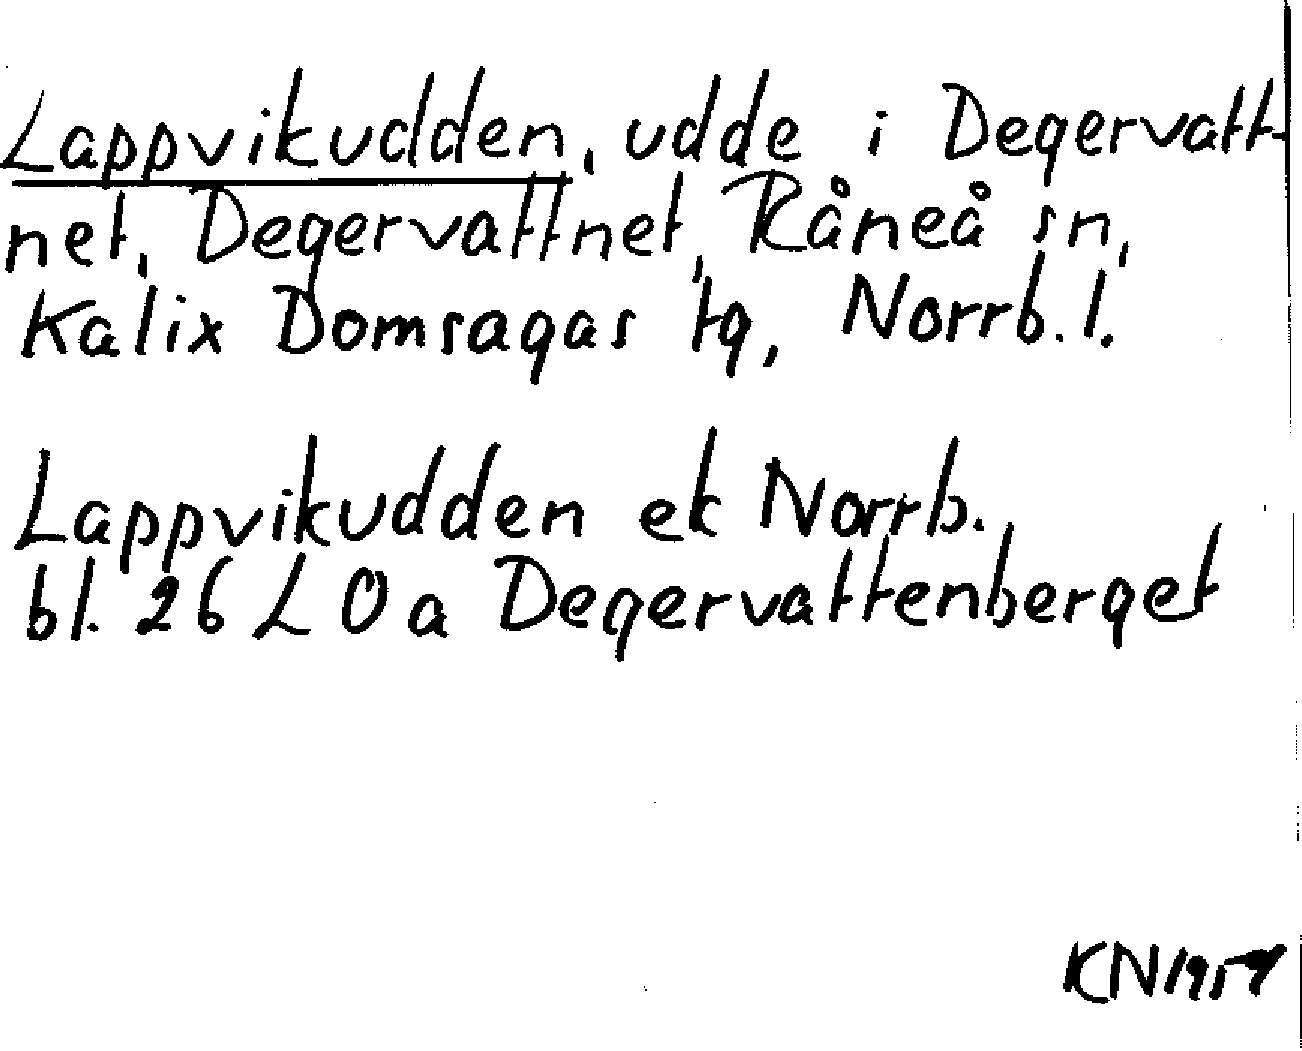 Lappvikudden, udde i Degervatt-
net, Degervattnet, Råneå sn,
Kalix Domsagas tg, Norrb. l.
Lappvikudden ek Norrb.
bl. 26 L 0 a Degervattenberget